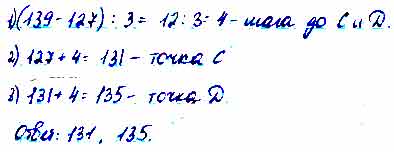 1) (139 - 127) : 3 = 12 : 3 = 4 - шага до С и D.
2) 127 + 4 = 131 - точка С
3) 131 + 4 = 135 - точка D
Ответ: 131, 135.